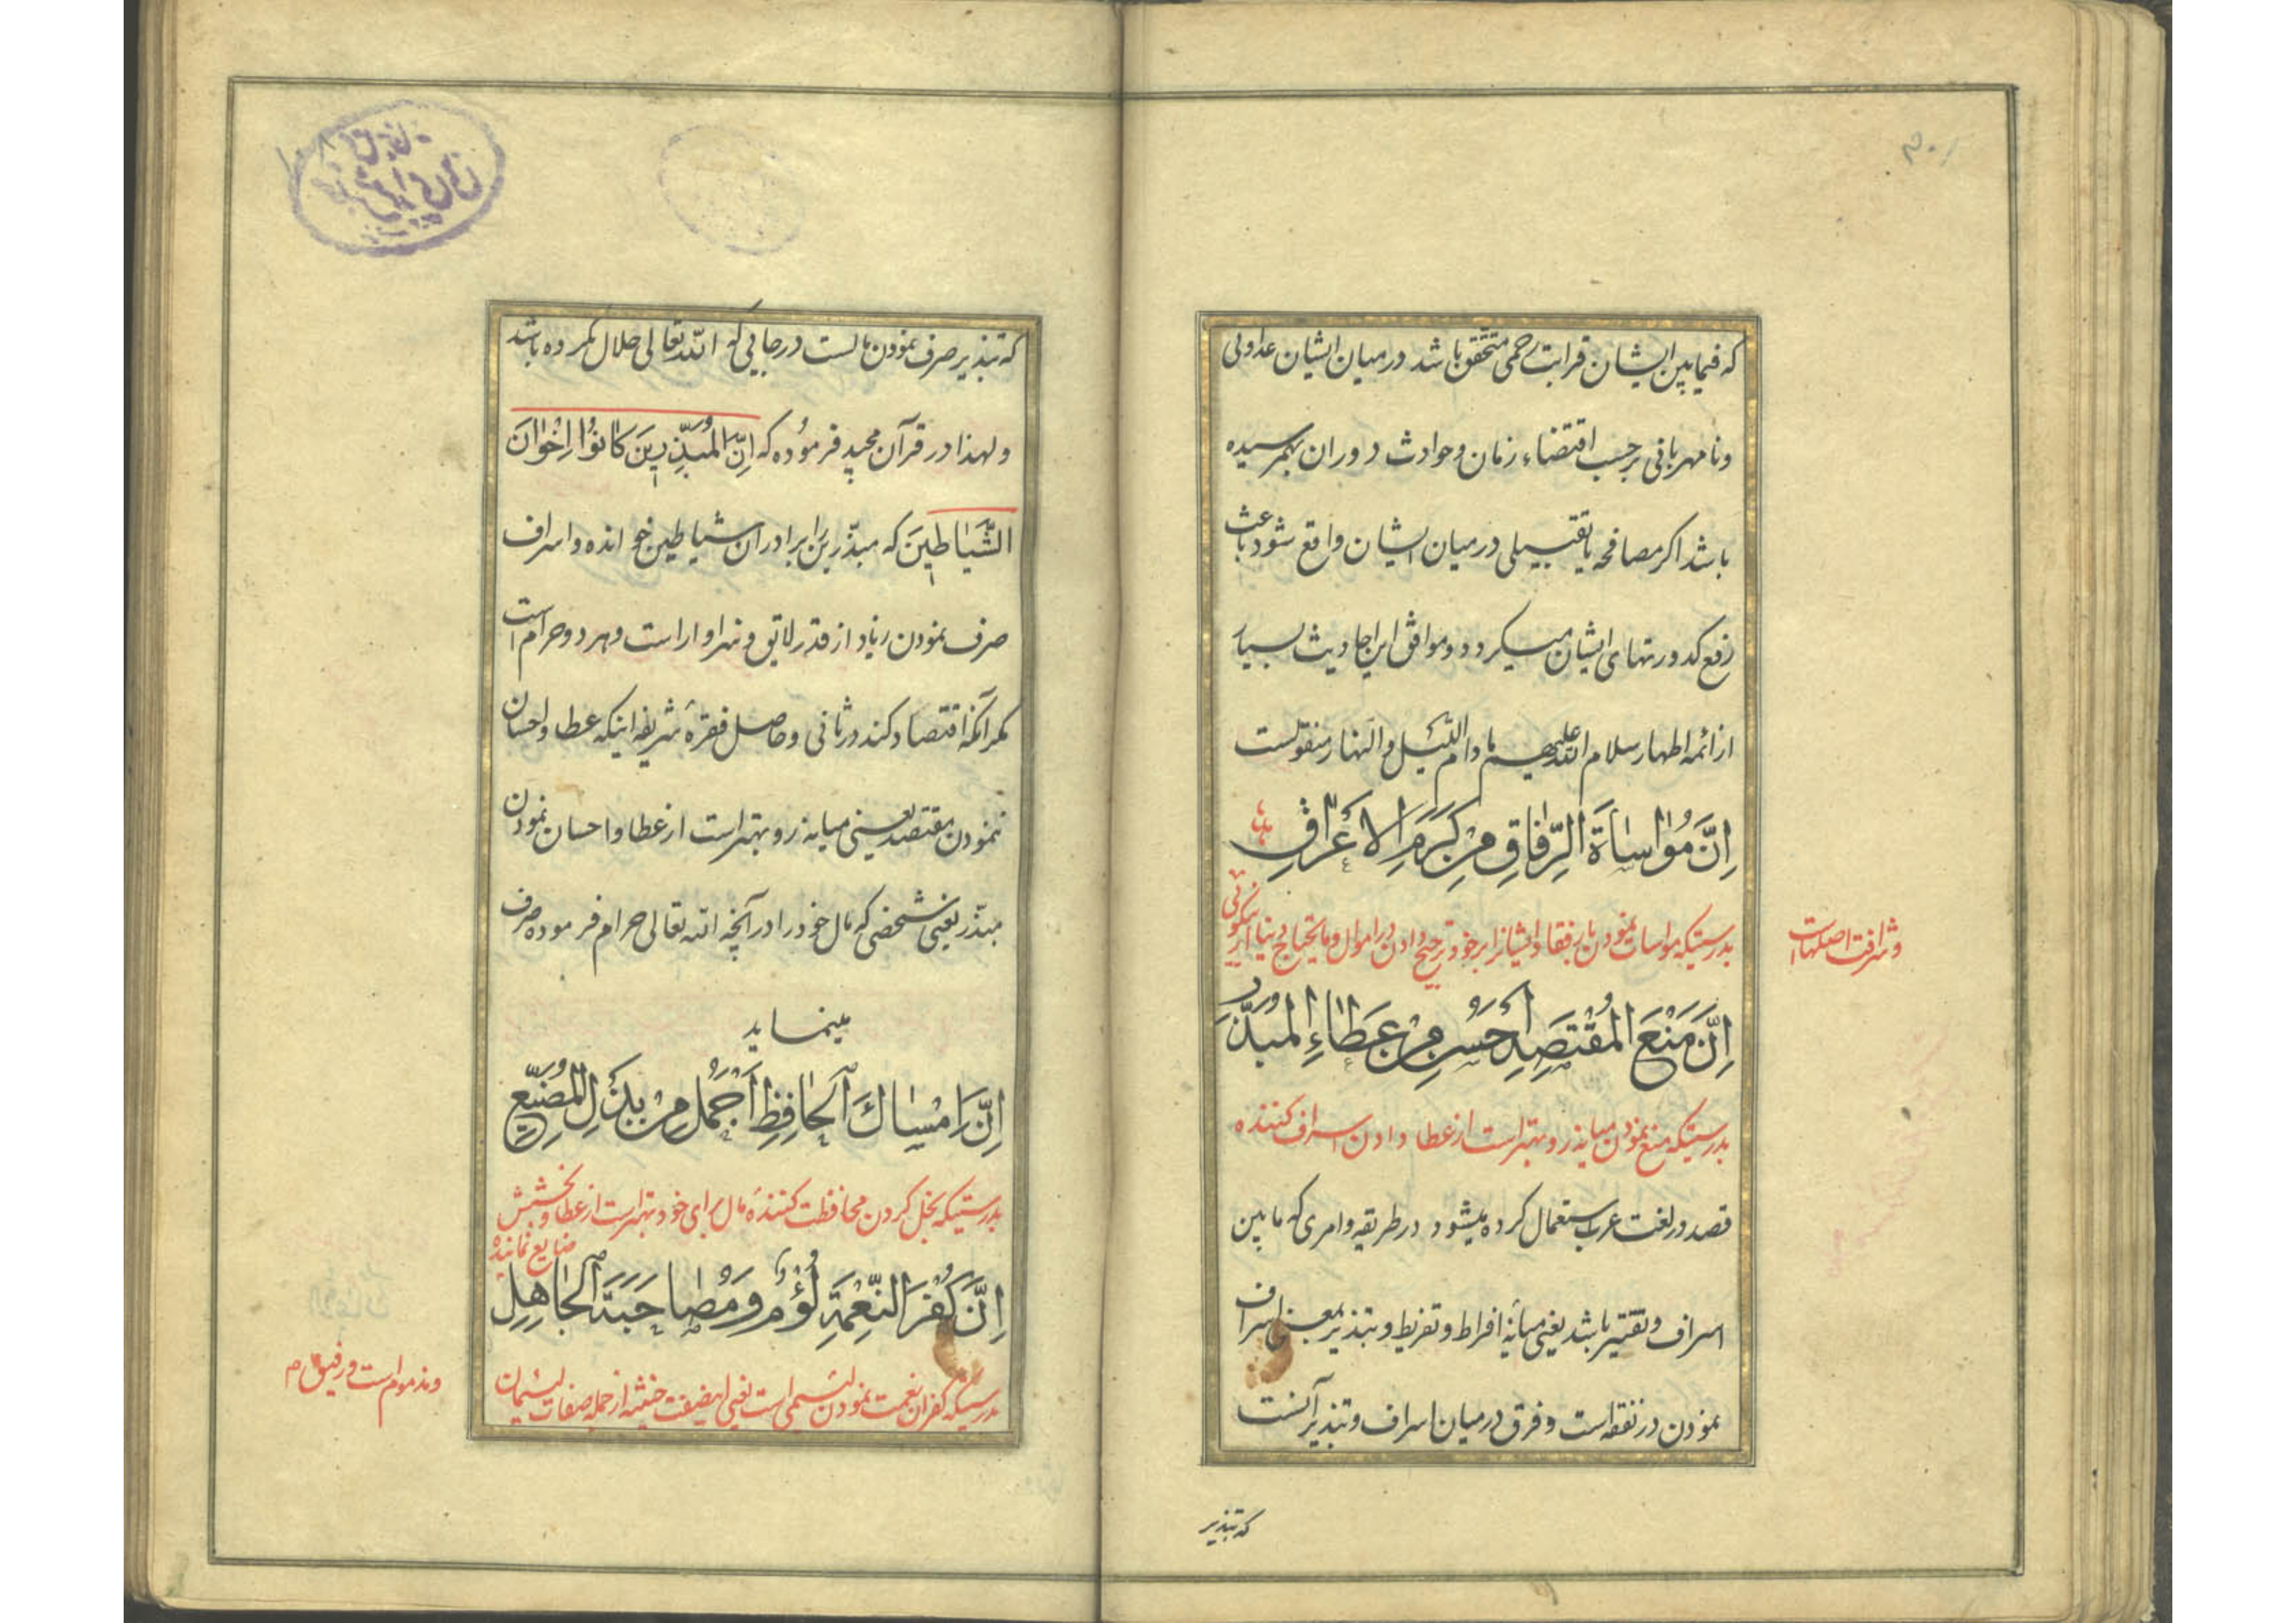 که فیمابین ایشان قرابت رحمی متحقق باشد در میان ایشان عداوتی
ونا مهربانی برحسب اقتضاء زمان وحوادث دوران بهمرسیده
باشد اکر مصافحه یا تقبیلی در میان ایشان واقع شود باعث
رفع کدورتهای ایشان میکردد وموافق این احادیث بسیار
از ائمه اطهار سلام الله علیهم مادام اللیل والنهار منقولست
اِنَّ مُوٰاسٰاةَ الرِّفٰاقِ مِنْ كَرَمِ الْاَعْرٰاقِ
بدرستیکه مواسات نمودن با رفقا وایشانرا بر خود ترجیح دادن در اموال ومایحتاج دنیا از نیکوئی
وشرافت اصلهاست
اِنَّ مَنْعَ الْمُقْتَصِدِ اَحْسَنُ مِنْ عَطٰاءِ الْمُبَذِّرِ
بدرستیکه منع نمودن میانه رو بهتر است از عطا دادن اسراف کننده
قصد در لغت عرب استعمال کرده میشود در طریقه وامری که مابین
اسراف وتقتیر باشد یعنی میانهٔ افراط وتفریط وتبذیر بمعنی اسراف
نمودن در نفقه است وفرق درمیان اسراف وتبذیر آنست
که تبذیر
که تبذیر صرف نمودن مالست درجایی که الله تعالی حلال نکرده باشد
ولهذا در قرآن مجید فرموده که اِنَّ الْمُبَذِّرِینَ کٰانُوا اِخْوٰانَ
الشَّیٰاطِینَ که مبذّرین را برادران شیاطین خوانده واسراف
صرف نمودن زیاد از قدر لایق وسزاوار است وهر دو حرام است
مکر آنکه اقتصاد کند در ثانی وحاصل فقرهٔ شریفه اینکه عطا واحسان
ننمودن مقتصد یعنی میانه رو بهتر است از عطا واحسان نمودن
مبذّر یعنی شخصی که مال خود را در آنچه الله تعالی حرام فرموده صرف
مینماید
اِنَّ اِمْسٰاكَ الْحٰافِظِ اَجْمَلُ مِنْ بَذْلِ الْمُضَیِّعِ
بدرستیکه بخل کردن محافظت کنندهٔ مال برای خود بهتر است از عطا وبخشش
ضایع نماینده
اِنَّ كُفْرَ النِّعْمَةِ لُؤْمٌ وَمُصٰاحَبَةَ الْجٰاهِلِ
بدرستیکه کفران نعمت نمودن لئیمی است یعنی اینصفت خبیثه از جمله صفات لئیمان
ومذموم است ورفیق